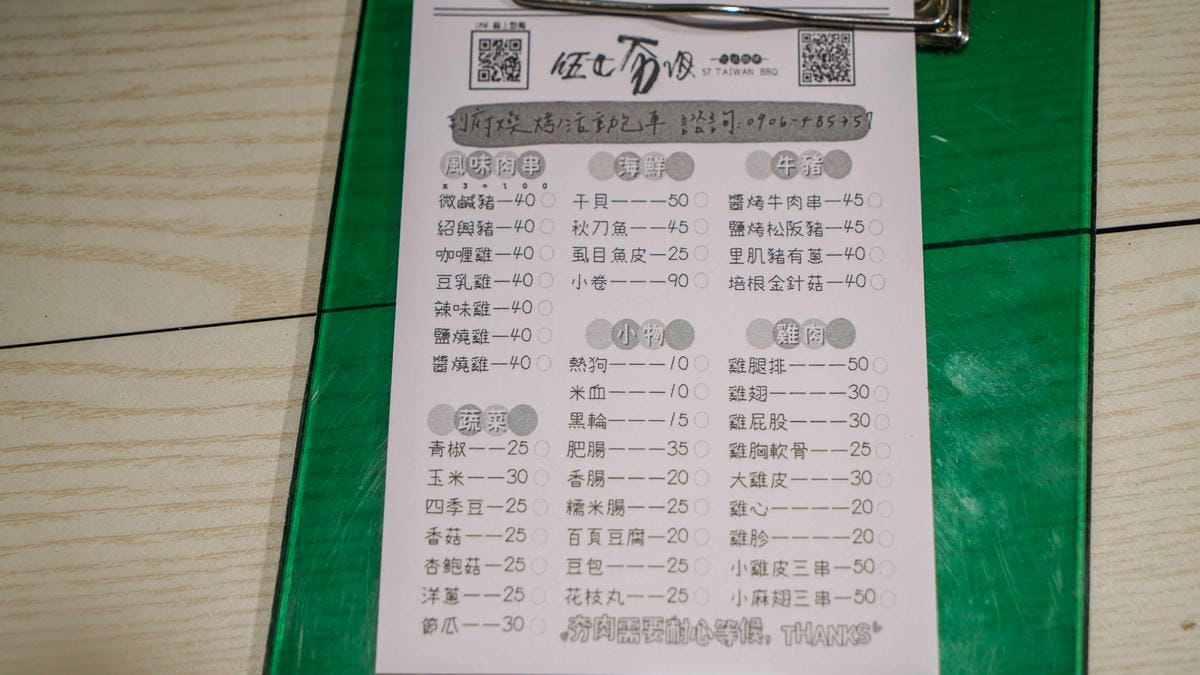 LINE 線上點餐
伍七夯浪
57 TAIWAN BBQ
到府燒烤/活動炮車 諮詢:0906-485757
風味肉串
x3=100
微鹹豬—40
紹興豬—40
咖喱雞—40
豆乳雞—40
辣味雞—40
鹽燒雞—40
醬燒雞—40
蔬菜
青椒——25
玉米——30
四季豆—25
香菇——25
杏鮑菇—25
洋蔥——25
節瓜——30
海鮮
干貝———50
秋刀魚——45
虱目魚皮—25
小卷———90
小物
熱狗———10
米血———10
黑輪———15
肥腸———35
香腸———20
糯米腸——25
百頁豆腐—20
豆包———25
花枝丸——25
牛豬
醬烤牛肉串—45
鹽烤松阪豬—45
里肌豬有蔥—40
培根金針菇—40
雞肉
雞腿排———50
雞翅————30
雞屁股———30
雞胸軟骨——25
大雞皮———30
雞心————20
雞胗————20
小雞皮三串—50
小麻翅三串—50
夯肉需要耐心等候, THANKS